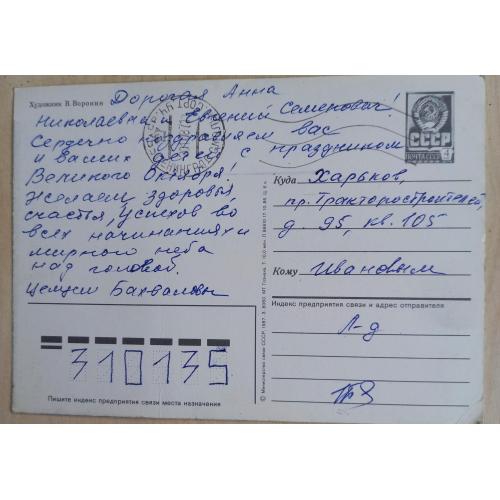 Художник В. Воронин
Дорогая Анна
Николаевна и Евгений Семенович!
Сердечно поздравляем вас
и ваших детей с праздником
Великого Октября!
Желаем здоровья,
счастья, успехов во
всех начинаниях и
мирного неба
над головой.
Целуем Бахваловы
310135
Пишите индекс предприятия связи места назначения
СССР
ПОЧТА СССР
4
Куда Харьков,
пр. Тракторостроителей,
д. 95, кв. 105
Кому Ивановым
Индекс предприятия связи и адрес отправителя
Л-д
© Министерство связи СССР, 1987.